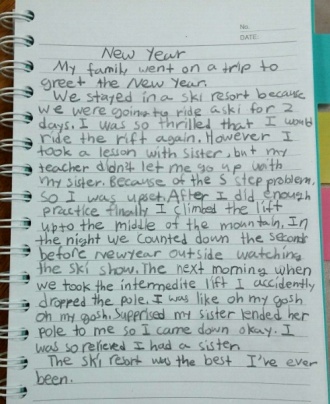 No.
DATE:
New Year
My family went on a trip to
greet the New Year.
We stayed in a ski resort because
we were going to ride a ski for 2
days. I was so thrilled that I would
ride the rift again. However I
took a lesson with sister, but my
teacher didn't let me go up with
my sister. Because of the S step problem,
So I was upset. After I did enough
practice finally I climbed the lift
upto the middle of the mountain. In
the night we counted down the seconds
before newyear outside watching
the ski show. The next morning when
we took the intermedite lift I accidently
dropped the pole. I was like oh my gosh
oh my gosh. Supprised my sister lended her
pole to me so I came down okay. I
was so relieved I had a sister.
The ski resort was the best I've ever
been.